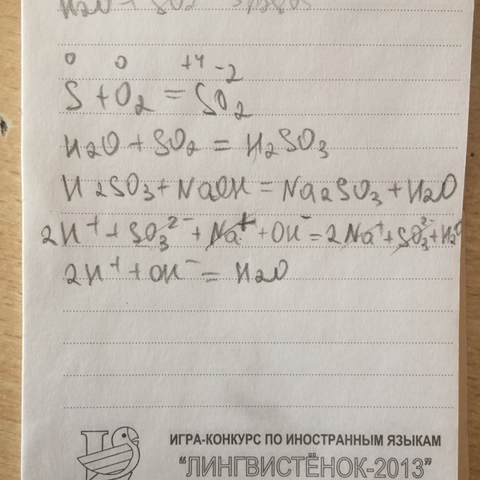 H₂O + SO₂
0 0 +4 -2
S + O₂ = SO₂
H₂O + SO₂ = H₂SO₃
H₂SO₃ + NaOH = Na₂SO₃ + H₂O
2H⁺ + SO₃²⁻ + Na⁺ + OH⁻ = 2Na⁺ + SO₃²⁻ + H₂O
2H⁺ + OH⁻ = H₂O
ИГРА-КОНКУРС ПО ИНОСТРАННЫМ ЯЗЫКАМ
"ЛИНГВИСТЁНОК-2013"